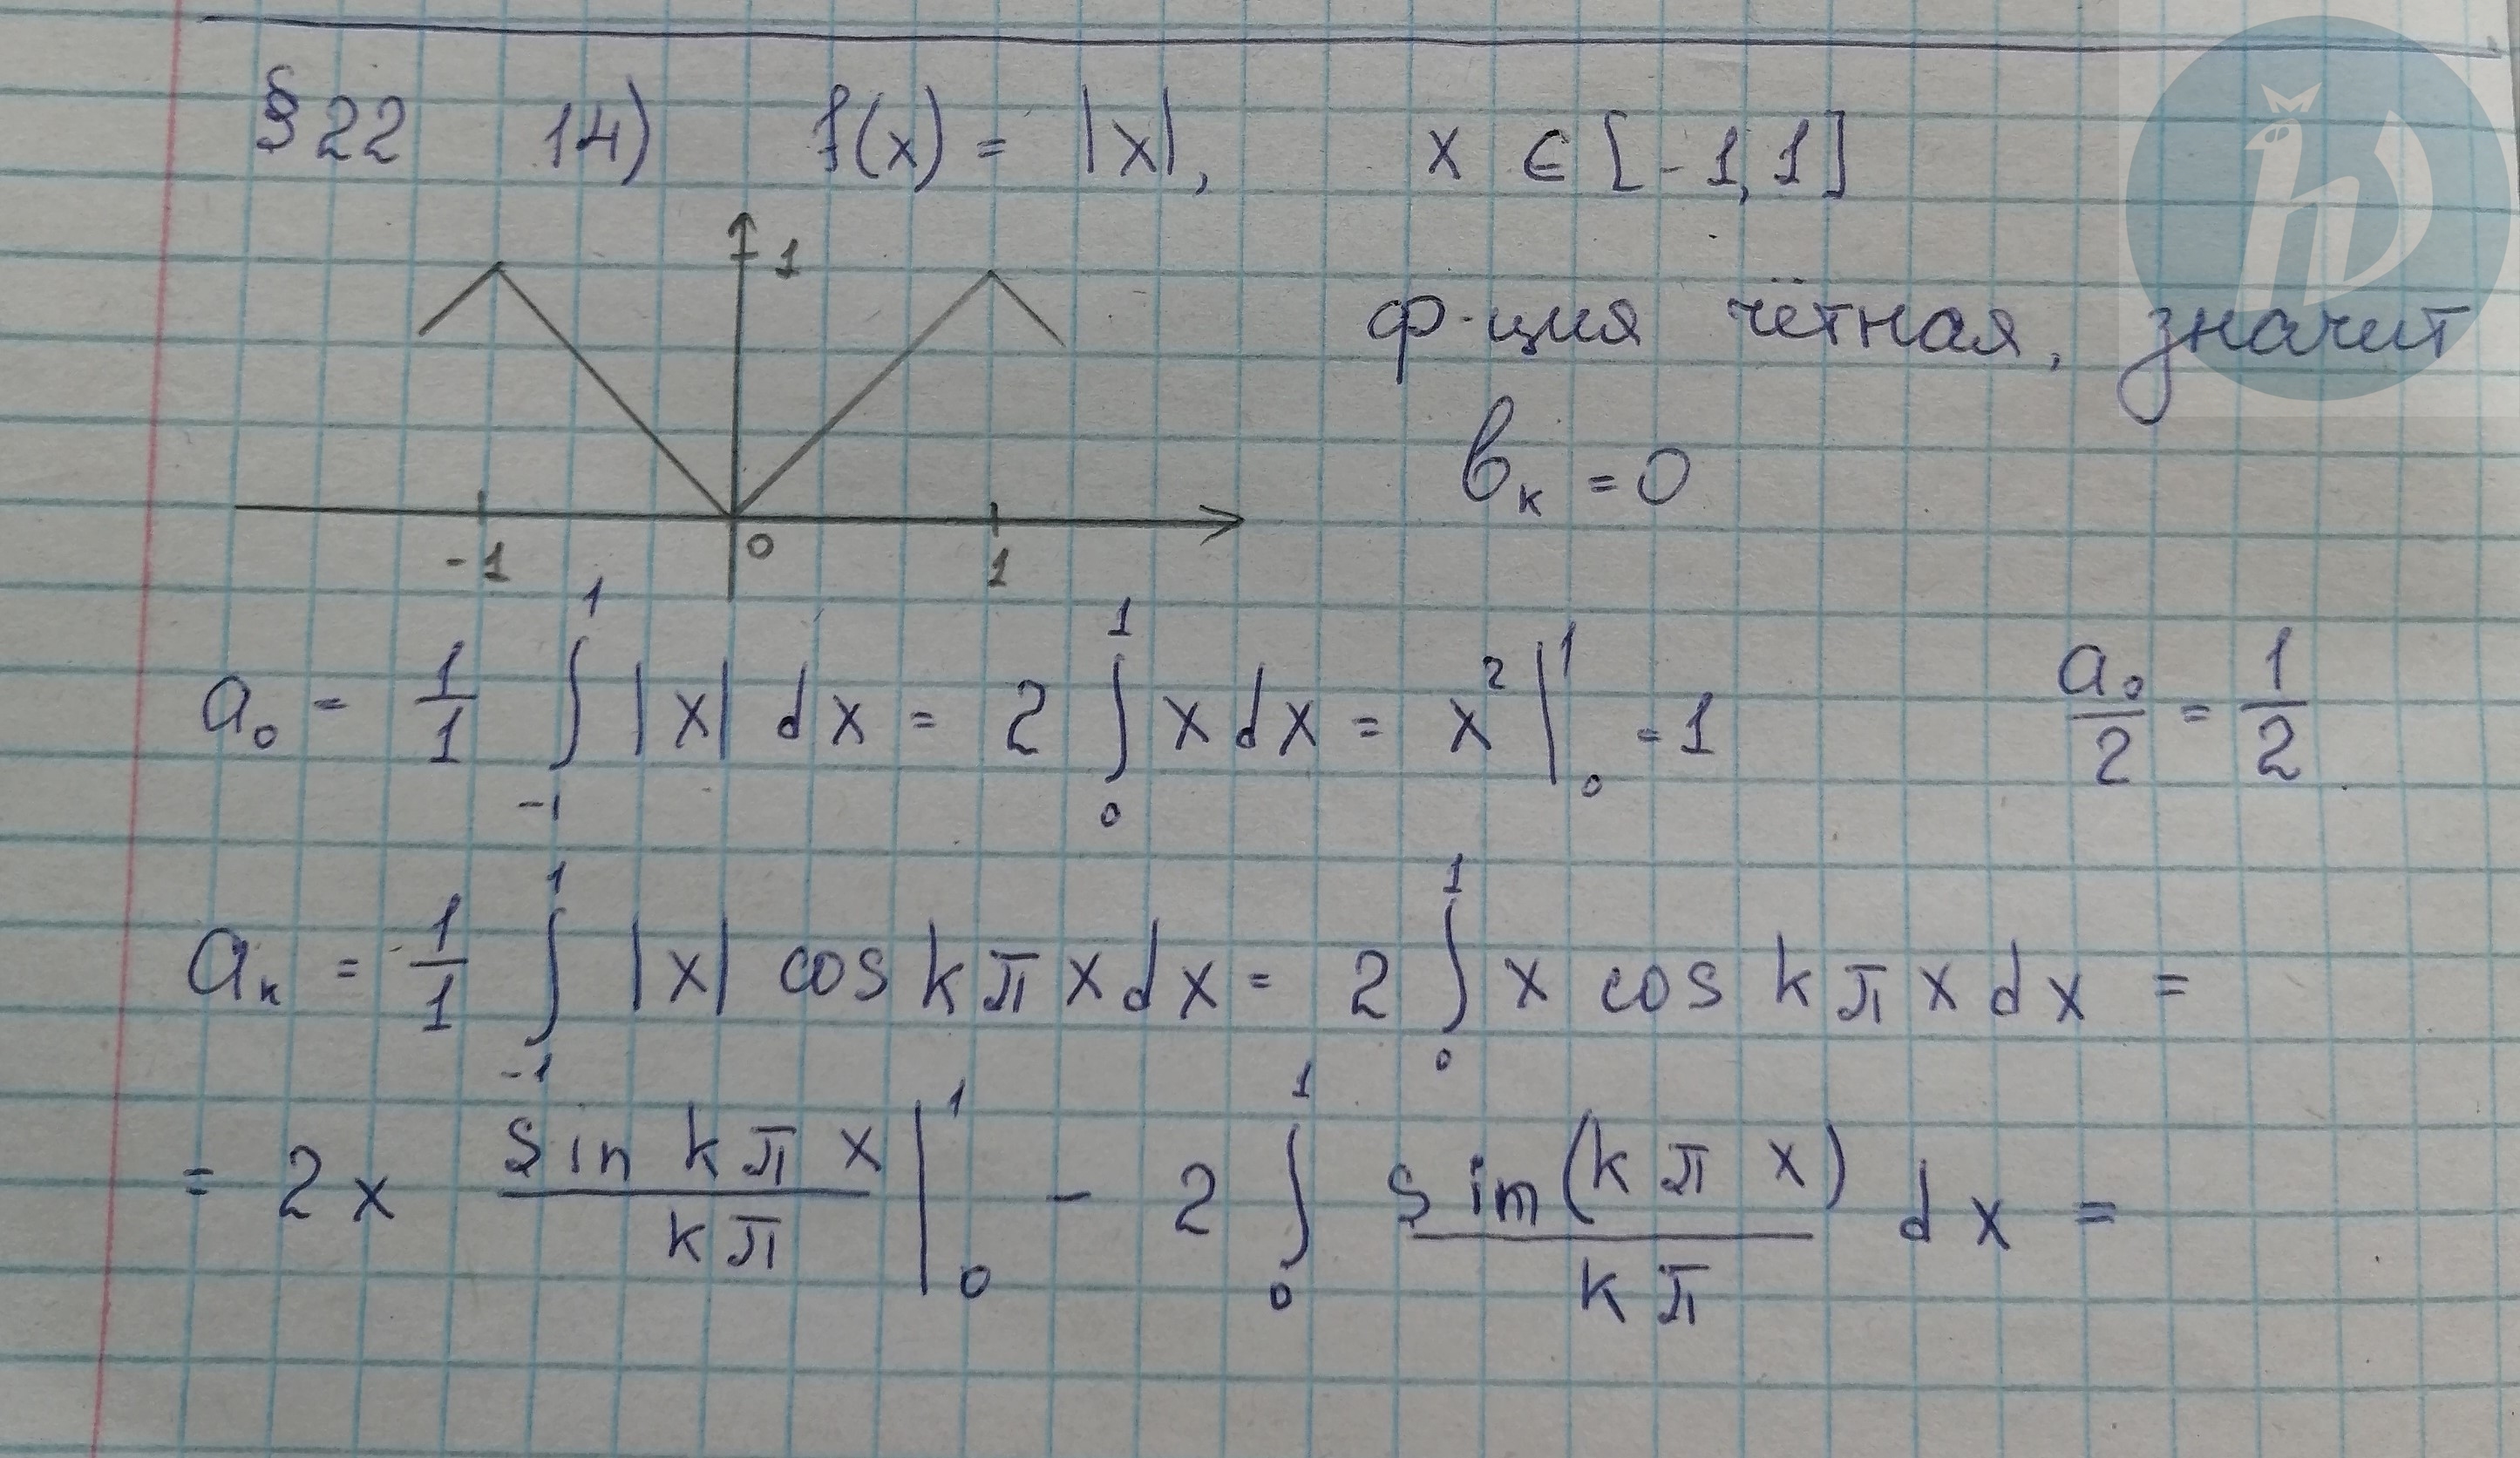 §22 14) f(x) = |x|, x ∈ [-1, 1]
1
ф-ция чётная, значит
b_k = 0
-1 0 1
a_0 = \frac{1}{1} \int_{-1}^{1} |x| dx = 2 \int_{0}^{1} x dx = x^2 |_{0}^{1} = 1 \frac{a_0}{2} = \frac{1}{2}
a_k = \frac{1}{1} \int_{-1}^{1} |x| cos kπx dx = 2 \int_{0}^{1} x cos kπx dx =
= 2x \frac{sin kπx}{kπ} |_{0}^{1} - 2 \int_{0}^{1} \frac{sin(kπx)}{kπ} dx =